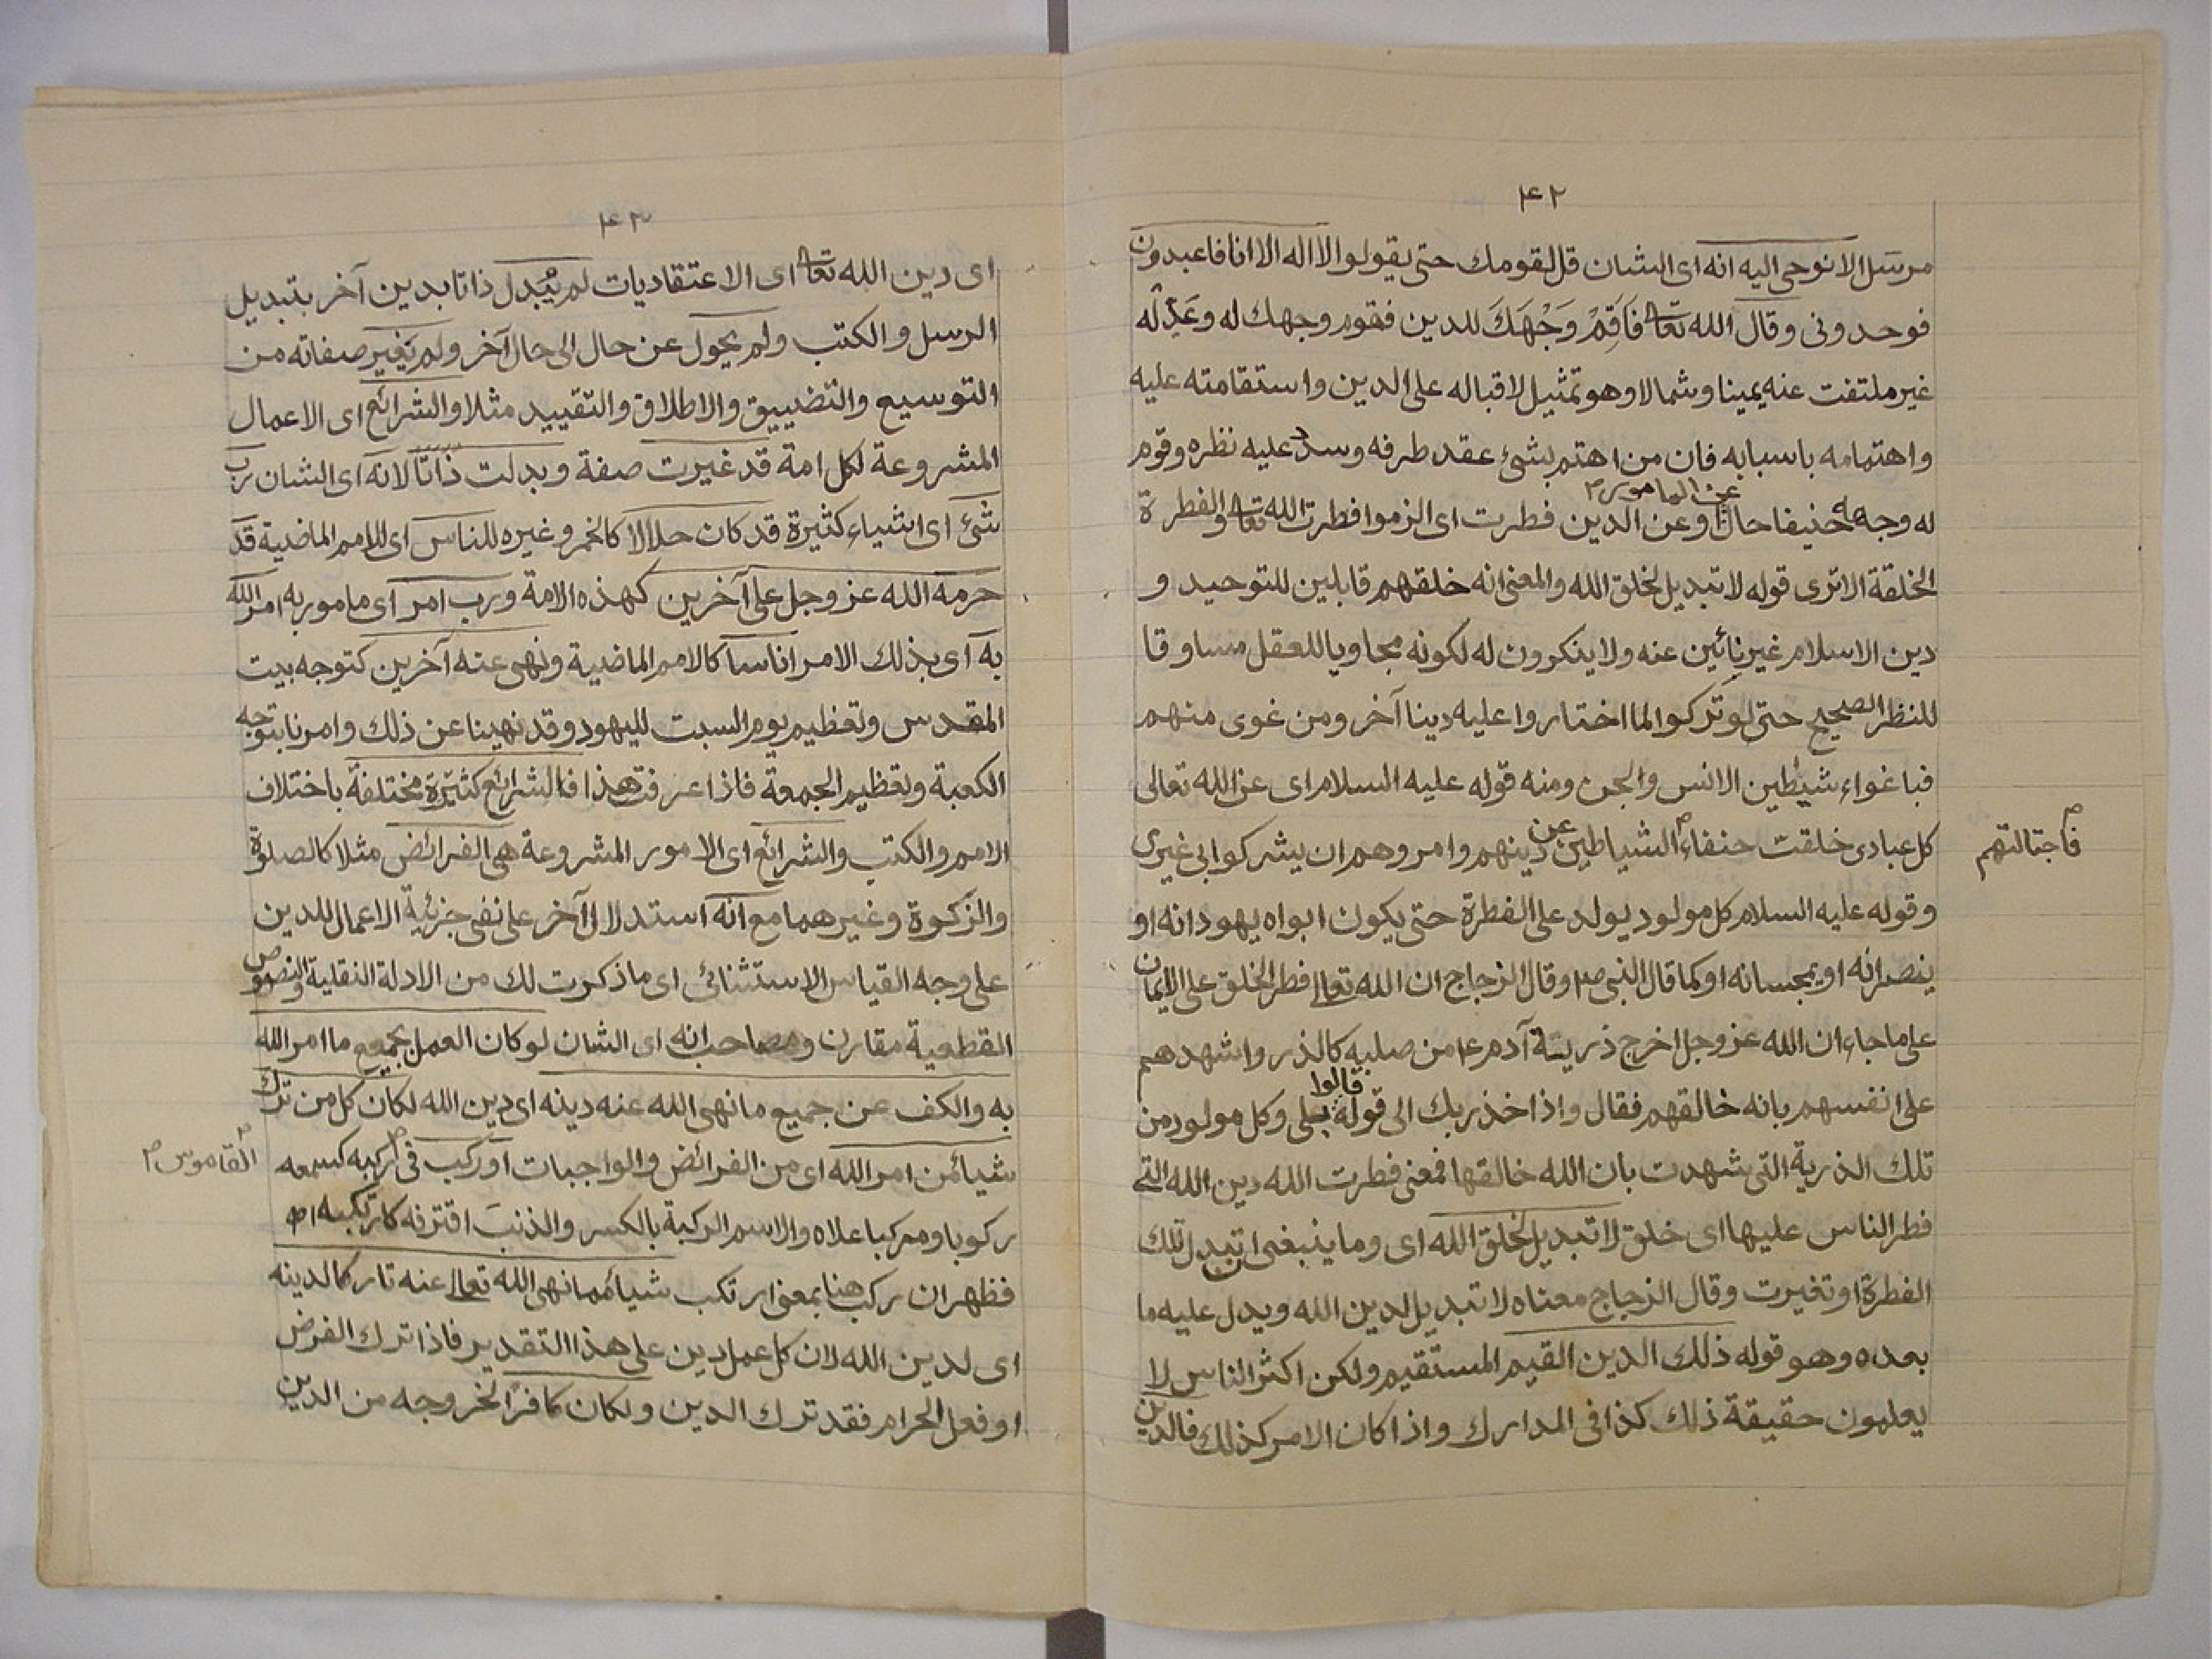 ٤٢
مرسل الا نوحى اليه انه اى الشان قل لقومك حتى يقولوا لا اله الا انا فاعبدون
فوحدونى وقال الله تعالى فَاَقِمْ وَجْهَكَ للدين فقوم وجهك له وعَدِّله
غير ملتفت عنه يمينا وشمالا وهو تمثيل لاقباله على الدين واستقامته عليه
واهتمامه باسبابه فان من اهتم بشئ عقد طرفه وسدد عليه نظره وقوم
له وجهه حنيفا حال عن المامور او عن الدين فطرت اى الزموا فطرت الله تعالى والفطرة
الخلقة الا ترى قوله لا تبديل لخلق الله والمعنى انه خلقهم قابلين للتوحيد و
دين الاسلام غير نائين عنه ولا ينكرون له لكونه مجاوبا للعقل مساوقا
للنظر الصحيح حتى لو تركوا لما اختاروا عليه دينا آخر ومن غوى منهم
فباغواء شيطين الانس والجن ومنه قوله عليه السلام اى عن الله تعالى
كل عبادى خلقت حنفاء الشياطين عن دينهم وامروهم ان يشركوا بى غيرى
فاجتالتهم
وقوله عليه السلام كل مولود يولد على الفطرة حتى يكون ابواه يهودانه او
ينصرانه او يمجسانه او كما قال النبى ص م وقال الزجاج ان الله تعالى فطر الخلق على الايمان
على ما جاء ان الله عز وجل اخرج ذرية آدم ع م من صلبه كالذر واشهدهم
على انفسهم بانه خالقهم فقال واذا خذ ربك الى قوله قالوا بلى وكل مولود من
تلك الذرية التى شهدت بان الله خالقها فمعنى فطرت الله دين الله التى
فطر الناس عليها اى خلق لا تبديل لخلق الله اى وما ينبغى ان تبدل تلك
الفطرة او تغيرت وقال الزجاج معناه لا تبديل لدين الله ويدل عليه ما
بعده وهو قوله ذلك الدين القيم المستقيم ولكن اكثر الناس لا
يعلمون حقيقة ذلك كذا فى المدارك واذا كان الامر كذلك فالدين
٤٣
اى دين الله تعالى اى الاعتقاديات لم يُبدل ذاتا بدين آخر بتبديل
الرسل والكتب ولم يحول عن حال الى حال آخر ولم يغير صفاته من
التوسيع والتضييق والاطلاق والتقييد مثلا والشرائع اى الاعمال
المشروعة لكل امة قد غيرت صفة وبدلت ذاتا لانه اى الشان رب
شئ اى اشياء كثيرة قد كان حلالا كالخمر وغيره للناس اى للامم الماضية قد
حرمه الله عز وجل على آخرين كهذه الامة ورب امر اى مامور به امر الله
به اى بذلك الامر اناسا كالامم الماضية ونهى عنه آخرين كتوجه بيت
المقدس وتعظيم يوم السبت لليهود وقد نهينا عن ذلك وامرنا بتوجه
الكعبة وتعظيم الجمعة فاذا عرفت هذا فالشرائع كثيرة مختلفة باختلاف
الامم والكتب والشرائع اى الامور المشروعة هى الفرائض مثلا كالصلوة
والزكوة وغيرهما مع انه استدلال آخر على نفى جزئية الاعمال للدين
على وجه القياس الاستثنائى اى ما ذكرت لك من الادلة النقلية والنصوص
القطعية مقارن ومصاحب انه اى الشان لو كان العمل بجميع ما امر الله
به والكف عن جميع ما نهى الله عنه دينه اى دين الله لكان كل من ترك
شيأ من امر الله اى من الفرائض والواجبات او ركب فى ركبه كسمعه
القاموس
ركوبا ومركبا علاه والاسم الركبة بالكسر والذنبَ اقترفه كارتكبه اه
فظهر ان ركب هنا بمعنى ارتكب شيأ مما نهى الله تعالى عنه تاركا لدينه
اى لدين الله لان كل عمل دين على هذا التقدير فاذا ترك الفرض
او فعل الحرام فقد ترك الدين ولكان كافرا لخروجه من الدين